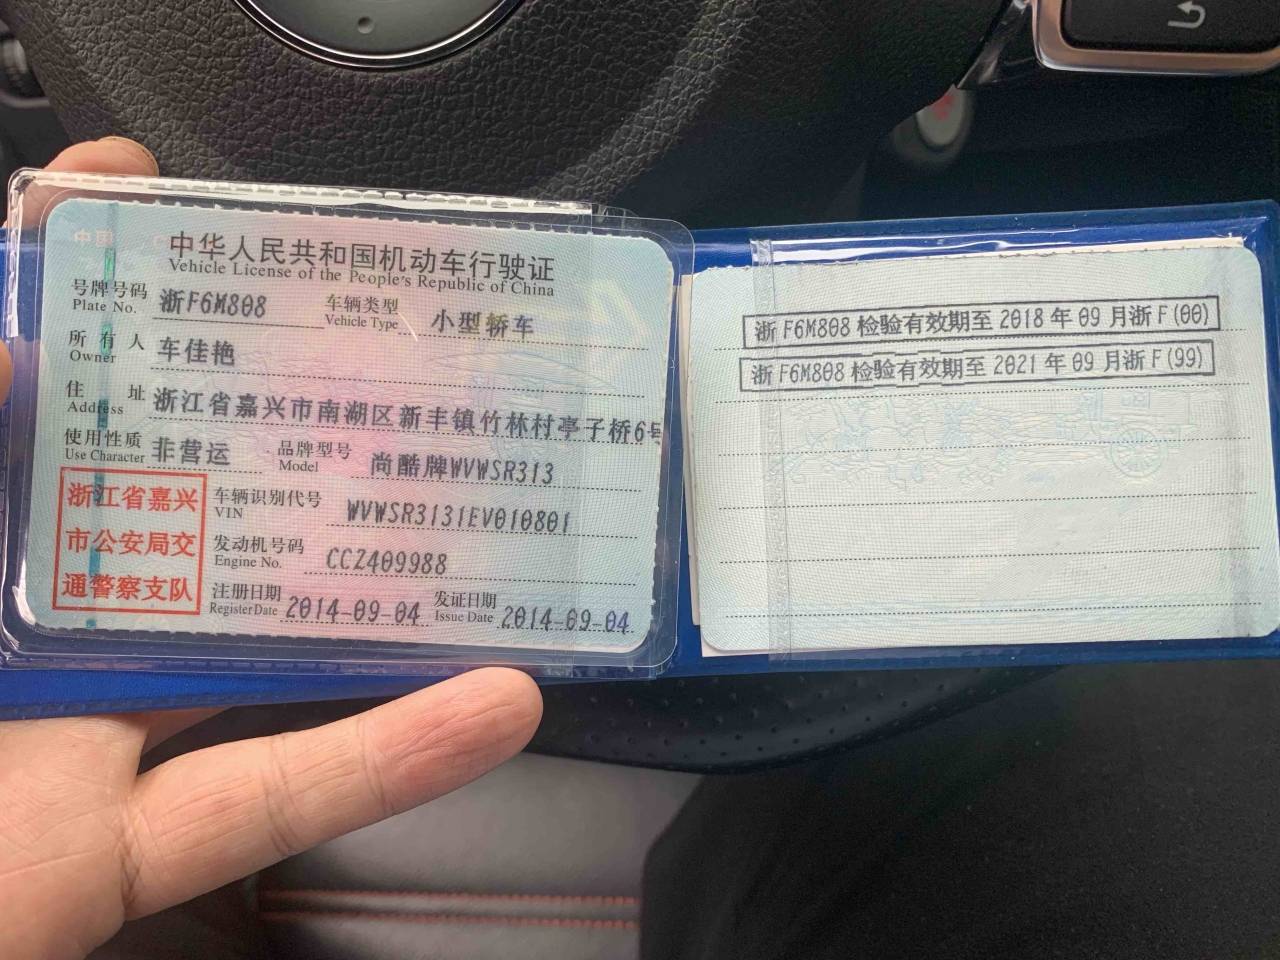 中华人民共和国机动车行驶证
Vehicle License of the People's Republic of China
号牌号码 浙F6M808 车辆类型 小型轿车
Plate No. Vehicle Type
所有人 车佳艳
Owner
住址 浙江省嘉兴市南湖区新丰镇竹林村亭子桥6号
Address
使用性质 非营运 品牌型号 尚酷牌WVWSR313
Use Character Model
浙江省嘉兴
市公安局交
通警察支队
车辆识别代号 WVWSR3131EV010801
VIN
发动机号码 CCZ409988
Engine No.
注册日期 2014-09-04 发证日期 2014-09-04
Register Date Issue Date
浙F6M808检验有效期至2018年09月浙F(00)
浙F6M808检验有效期至2021年09月浙F(99)